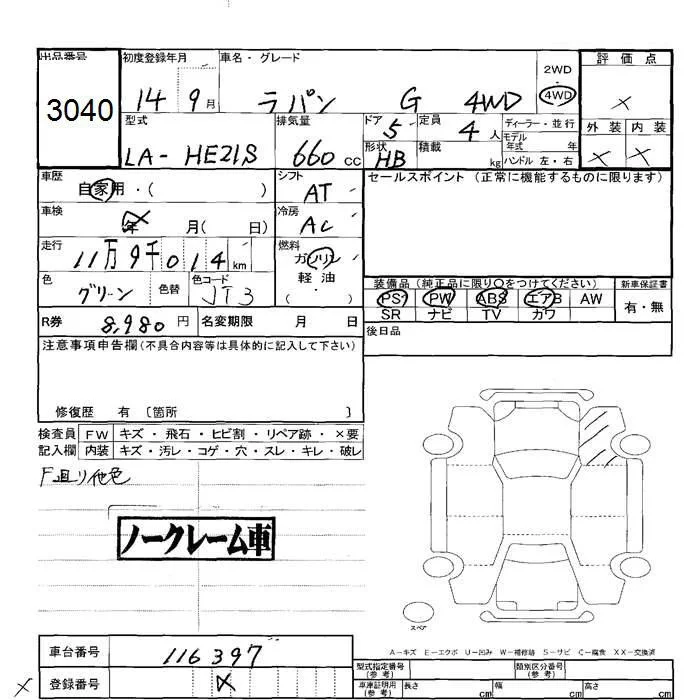 出品番号 初度登録年月 車名・グレード 2WD 評価点
3040 14 9月 ラパン G 4WD 4WD ×
型式 排気量 ドア 5 定員 4人 ディーラー・並行 外装 内装
LA-HE21S 660cc 形状 HB 積載 kg モデル年式 年 × ×
ハンドル 左・右
車歴 自家用・( ) シフト AT セールスポイント (正常に機能するものに限ります)
車検 年 月( 日) 冷房 AC
走行 11万9千014km 燃料 ガソリン
軽油・( )
色 グリーン 色替 色コード JT3 装備品 (純正品に限り○をつけてください) 新車保証書
PS PW ABS エアB AW 有・無
R券 8,980円 名変期限 月 日 SR ナビ TV カワ
注意事項申告欄(不具合内容等は具体的に記入して下さい) 後日品
修復歴 有 〔箇所 〕
検査員 FW キズ・飛石・ヒビ割・リペア跡・×要
記入欄 内装 キズ・汚レ・コゲ・穴・スレ・キレ・破レ
F廻り他色
ノークレーム車
スペア
A-キズ E-エクボ U-凹み W-補修跡 S-サビ C-腐食 XX-交換済
車台番号 116397 型式指定番号(参考) 類別区分番号(参考)
× 登録番号 × 車庫証明用(参考) 長さ cm 幅 cm 高さ cm